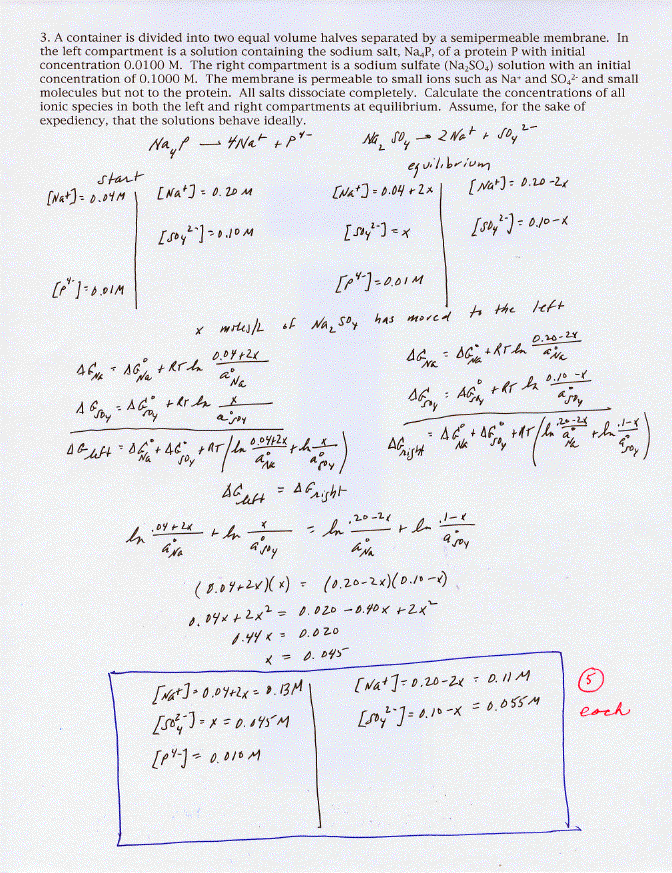 3. A container is divided into two equal volume halves separated by a semipermeable membrane. In
the left compartment is a solution containing the sodium salt, Na₄P, of a protein P with initial
concentration 0.0100 M. The right compartment is a sodium sulfate (Na₂SO₄) solution with an initial
concentration of 0.1000 M. The membrane is permeable to small ions such as Na⁺ and SO₄²⁻ and small
molecules but not to the protein. All salts dissociate completely. Calculate the concentrations of all
ionic species in both the left and right compartments at equilibrium. Assume, for the sake of
expediency, that the solutions behave ideally.
Na₄P → 4Na⁺ + P⁴⁻ Na₂SO₄ → 2Na⁺ + SO₄²⁻
start equilibrium
[Na⁺] = 0.04M [Na⁺] = 0.20 M [Na⁺] = 0.04 + 2x [Na⁺] = 0.20 - 2x
[SO₄²⁻] = 0.10 M [SO₄²⁻] = x [SO₄²⁻] = 0.10 - x
[P⁴⁻] = 0.01M [P⁴⁻] = 0.01 M
x moles/L of Na₂SO₄ has moved to the left
ΔG_Na = ΔG°_Na + RT ln (0.04+2x)/a°_Na ΔG_Na = ΔG°_Na + RT ln (0.20-2x)/a°_Na
ΔG_SO₄ = ΔG°_SO₄ + RT ln x/a°_SO₄ ΔG_SO₄ = ΔG°_SO₄ + RT ln (0.10-x)/a°_SO₄
ΔG_left = ΔG°_Na + ΔG°_SO₄ + RT (ln (0.04+2x)/a°_Na + ln x/a°_SO₄) ΔG_right = ΔG°_Na + ΔG°_SO₄ + RT (ln (.20-2x)/a°_Na + ln (.1-x)/a°_SO₄)
ΔG_left = ΔG_right
ln (.04+2x)/a°_Na + ln x/a°_SO₄ = ln (.20-2x)/a°_Na + ln (.1-x)/a°_SO₄
(0.04+2x)(x) = (0.20-2x)(0.10-x)
0.04x + 2x² = 0.020 - 0.40x + 2x²
0.44 x = 0.020
x = 0.045
[Na⁺] = 0.04+2x = 0.13M [Na⁺] = 0.20-2x = 0.11 M
[SO₄²⁻] = x = 0.045M [SO₄²⁻] = 0.10-x = 0.055M
[P⁴⁻] = 0.010 M
5
each